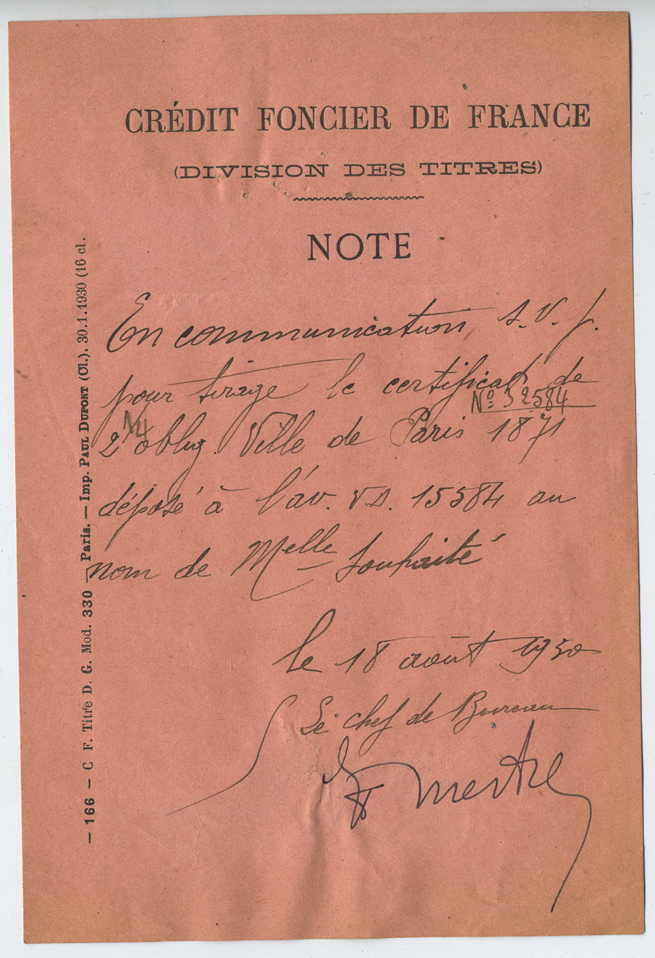 CRÉDIT FONCIER DE FRANCE
(DIVISION DES TITRES)
NOTE
En communication, s.v.p.
pour tirage le certificat de
N° 32584
2 oblig. Ville de Paris 1871
déposé à l'av. V.D. 15584 au
nom de Melle Souhaité
le 18 août 1930
Le chef de Bureau
Mestre
— 166 — C F. Titre D. G. Mod. 330 — Paris. — Imp. PAUL DUPONT (Cl.). 30.1.1930 (16 cl.